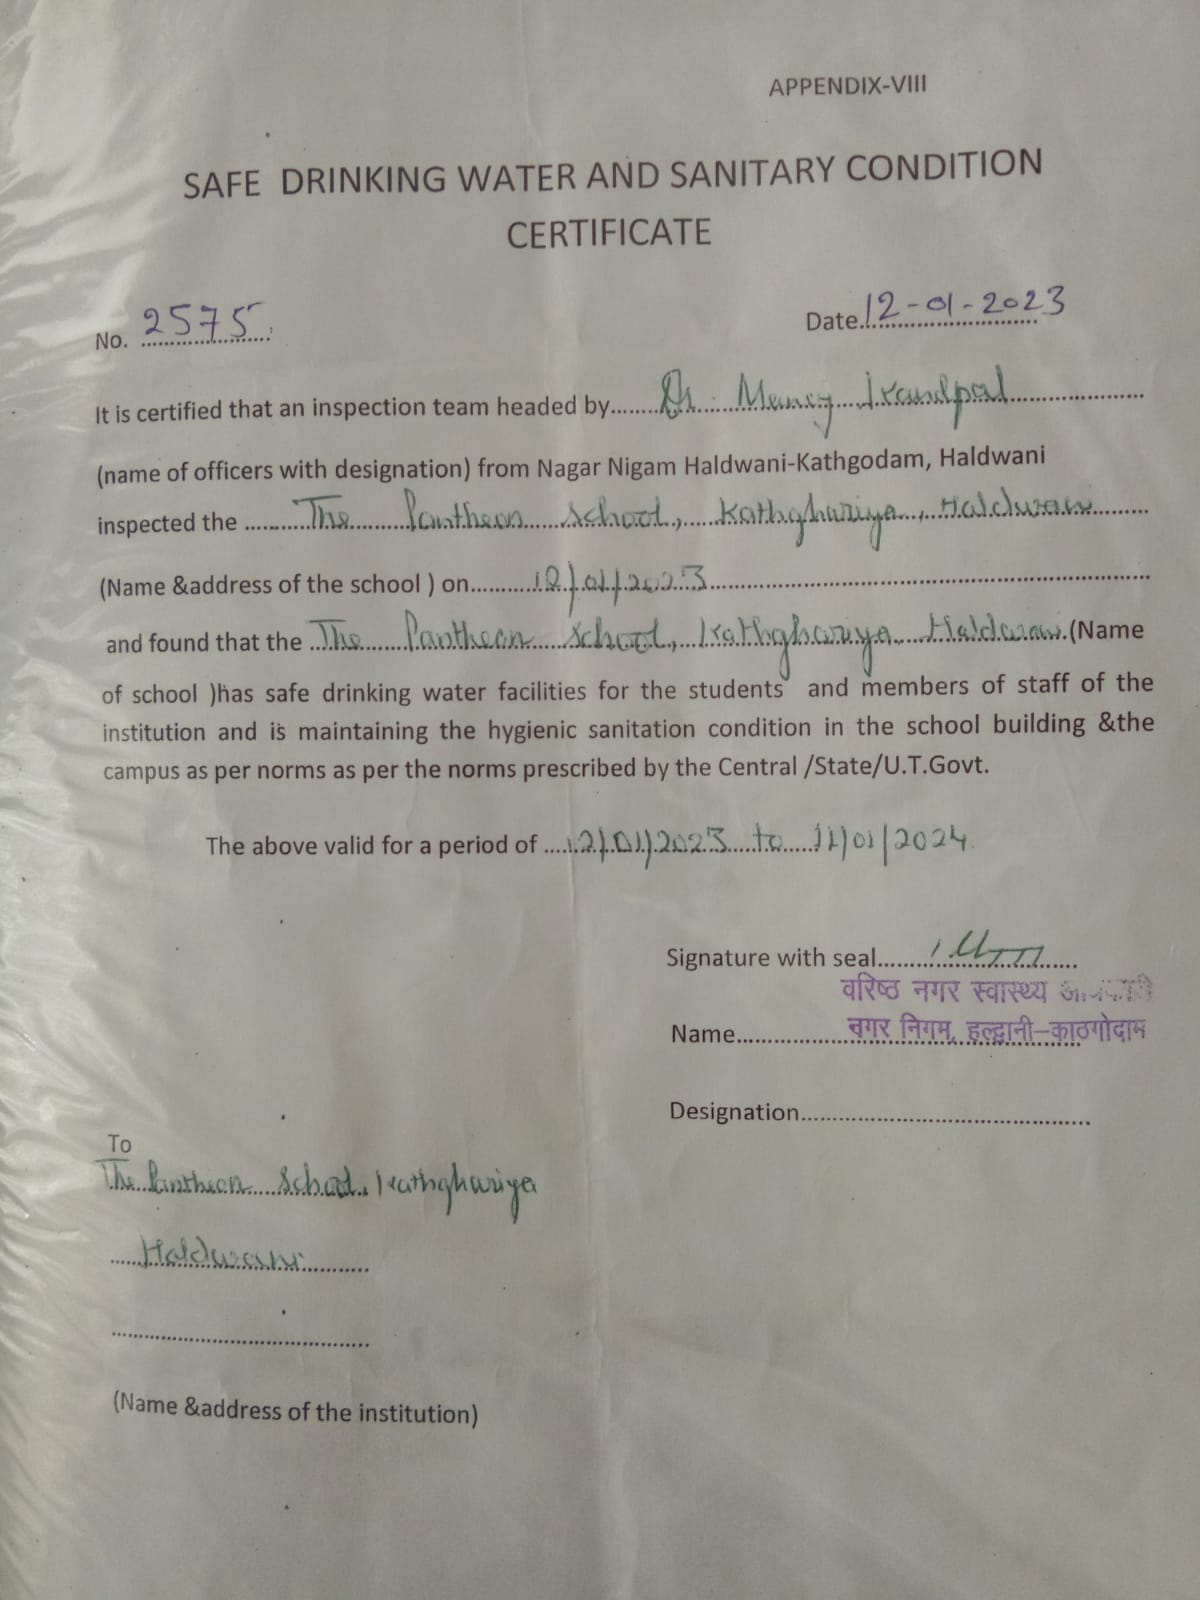 APPENDIX-VIII
SAFE DRINKING WATER AND SANITARY CONDITION
CERTIFICATE
No. 2575
Date 12-01-2023
It is certified that an inspection team headed by Dr.
(name of officers with designation) from Nagar Nigam Haldwani-Kathgodam, Haldwani
inspected the The Pantheon School, Kathghariya, Haldwani
(Name &address of the school ) on 12/01/2023
and found that the The Pantheon School, Kathghariya Haldwani (Name
of school )has safe drinking water facilities for the students and members of staff of the
institution and is maintaining the hygienic sanitation condition in the school building &the
campus as per norms as per the norms prescribed by the Central /State/U.T.Govt.
The above valid for a period of 12/01/2023 to 11/01/2024
Signature with seal
वरिष्ठ नगर स्वास्थ्य
Name नगर निगम, हल्द्वानी-काठगोदाम
Designation
To
The Pantheon School, Kathghariya
Haldwani
(Name &address of the institution)